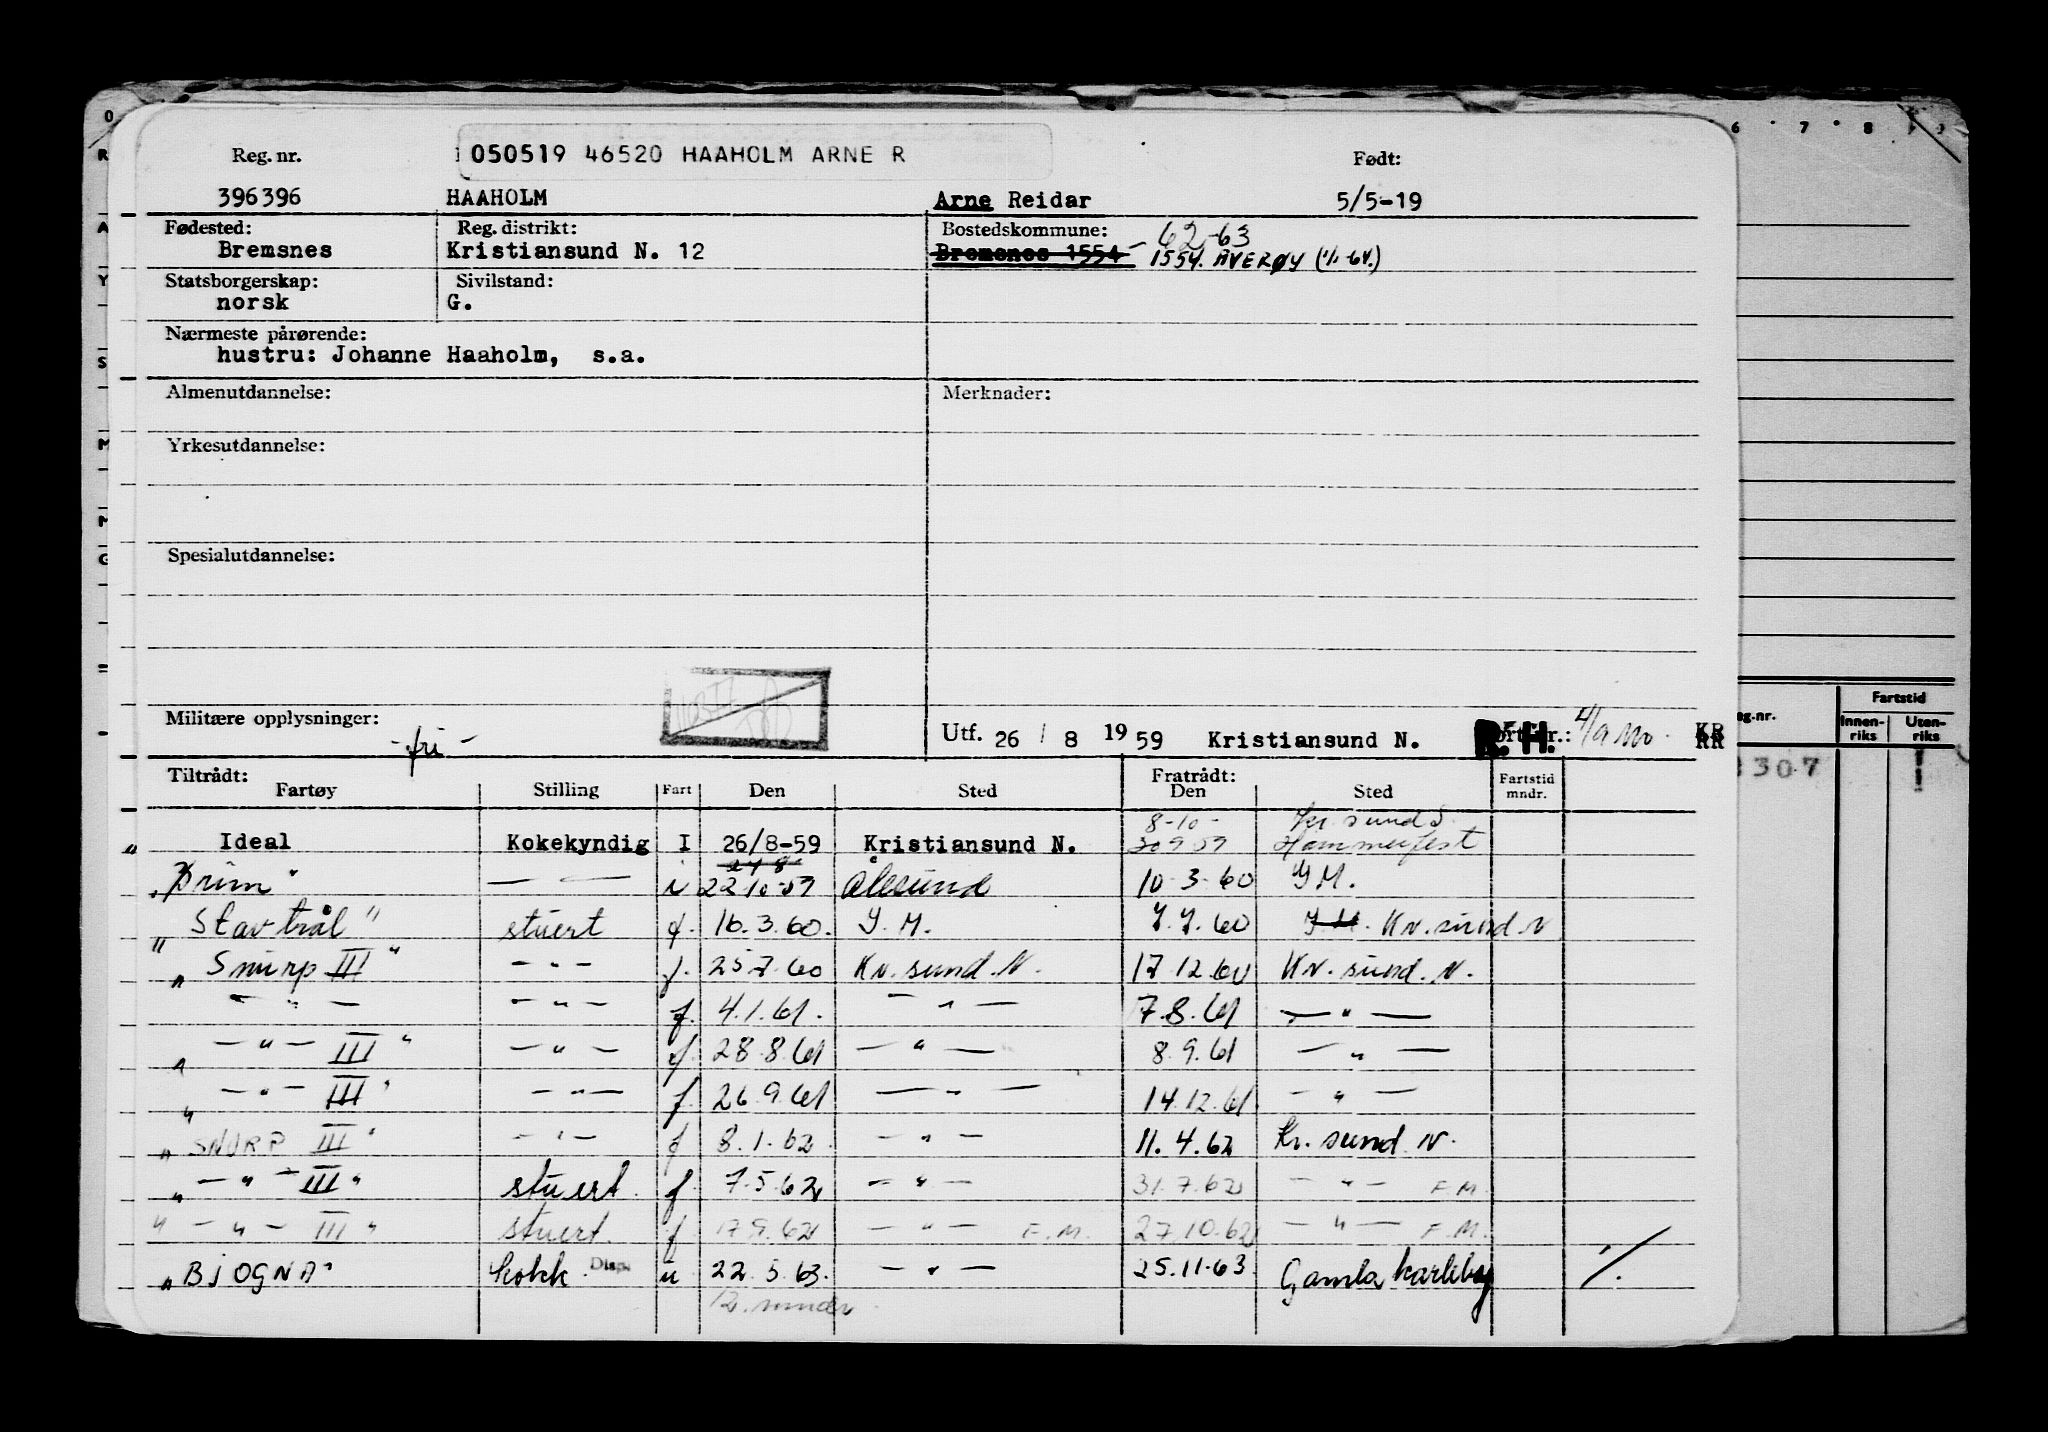 050519 46520 HAAHOLM ARNE R
Reg. nr. Født:
396396 HAAHOLM Arne Reidar 5/5-19
Fødested: Reg. distrikt: Bostedskommune: 62-63
Bremsnes Kristiansund N. 12 Bremsnes 1554 1554. AVERØY (1/1-64.)
Statsborgerskap: Sivilstand:
norsk G.
Nærmeste pårørende:
hustru: Johanne Haaholm, s.a.
Almenutdannelse: Merknader:
Yrkesutdannelse:
Spesialutdannelse:
Militære opplysninger: - fri -
Utf. 26 / 8 1959 Kristiansund N. R.H. KR
Tiltrådt: Fratrådt:
Fartøy Stilling Fart Den Sted Den Sted Fartstid mndr.
8-10- Kr. sund S.
Ideal Kokekyndig I 26/8-59 Kristiansund N. 30 9 59 Hammerfest
"Drim" — — i 22 10-59 Ålesund 10-3-60 Y M.
"Stavtrål" stuert f. 16.3.60. Y. M. 7.7.60 Y.M. Kr. sund N
"Snurp III" - " - f. 25.7.60 Kr. sund. N. 17.12.60 Kr. sund. N.
- " - - " - f. 4.1.61. - " - 7.8.61 - " -
" - " - III " - " - f. 28.8.61 - " - 8.9.61 - " -
" - " - III " - " - f. 26.9.61 - " - 14.12.61. - " -
"SNURP III" - " - f 8.1.62. - " - 11.4.62 Kr. sund. N.
" - " - III " stuert. f 7.5.62 - " - 31.7.62 - " - F.M.
" - " - III " stuert. f 17.9.62 - " - F.M. 27.10.62 - " - F.M.
"BJOGNA" kokk Disp. u 22.5.63. - " - 25.11.63. Gamla karleby
6 7 8 9
Fartstid
Innen-riks Uten-riks
307